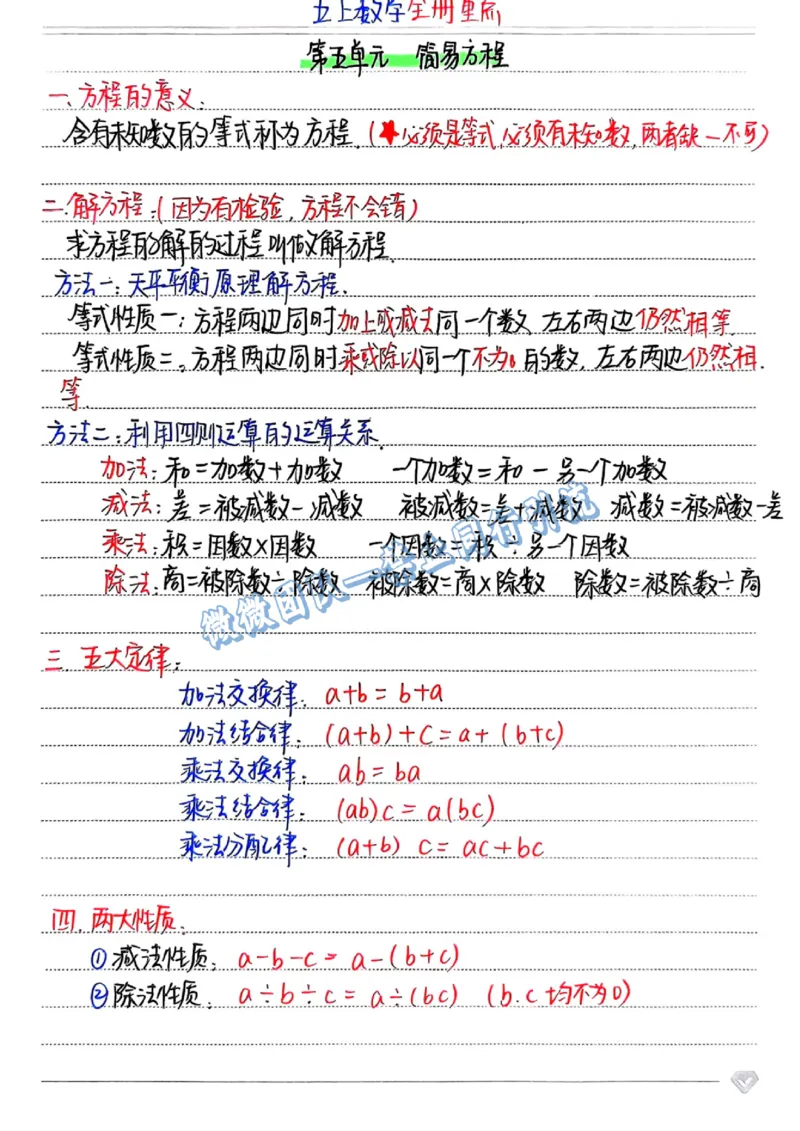 五上数学全册重点
第五单元 简易方程
一、方程的意义:
含有未知数的等式称为方程.(★必须是等式,必须有未知数,两者缺一不可)
二.解方程:(因为有检验,方程不会错)
求方程的解的过程叫做解方程.
方法一:天平平衡原理解方程.
等式性质一:方程两边同时加上或减去同一个数,左右两边仍然相等.
等式性质二:方程两边同时乘或除以同一个不为0的数,左右两边仍然相.
等.
方法二:利用四则运算的运算关系.
加法:和=加数+加数 一个加数=和-另一个加数
减法:差=被减数-减数 被减数=差+减数 减数=被减数-差
乘法:积=因数×因数 一个因数=积÷另一个因数
除法:商=被除数÷除数 被除数=商×除数 除数=被除数÷商
三.五大定律:
加法交换律: a+b=b+a
加法结合律: (a+b)+c=a+(b+c)
乘法交换律: ab=ba
乘法结合律: (ab)c=a(bc)
乘法分配律: (a+b) c=ac+bc
四.两大性质:
①减法性质: a-b-c=a-(b+c)
②除法性质: a÷b÷c=a÷(bc) (b.c均不为0)